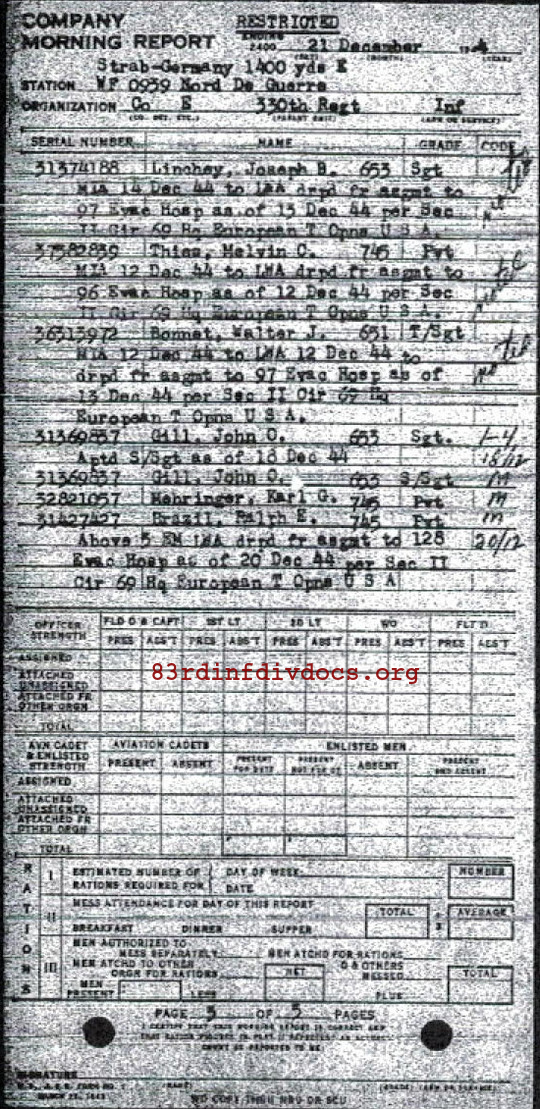 COMPANY RESTRICTED
MORNING REPORT ENDING 2400 21 December 1944
Strab-Germany 1400 yds E
STATION WF 0959 Nord De Guerre
ORGANIZATION Co E 330th Regt Inf
SERIAL NUMBER NAME GRADE CODE
31374188 Linchey, Joseph B. 653 Sgt
MIA 14 Dec 44 to LWA drpd fr asgmt to
97 Evac Hosp as of 13 Dec 44 per Sec
II Cir 69 Hq European T Opns U S A.
37582839 Thies, Melvin C. 745 Pvt
MIA 12 Dec 44 to LWA drpd fr asgmt to
96 Evac Hosp as of 12 Dec 44 per Sec
II Cir 69 Hq European T Opns U S A.
36313972 Bonnet, Walter J. 651 T/Sgt
MIA 12 Dec 44 to LWA 12 Dec 44 to
drpd fr asgmt to 97 Evac Hosp as of
13 Dec 44 per Sec II Cir 69 Hq
European T Opns U S A.
31369837 Gill, John O. 653 Sgt.
Aptd S/Sgt as of 18 Dec 44 18/12
31369837 Gill, John O. 653 S/Sgt m
32821057 Mehringer, Karl G. 745 Pvt m
31427427 Brazil, Ralph E. 745 Pvt m
Above 3 EM LWA drpd fr asgmt to 128 20/12
Evac Hosp as of 20 Dec 44 per Sec II
Cir 69 Hq European T Opns U S A
OFFICER STRENGTH FLD O & CAPT 1ST LT 2D LT WO FLT O
PRES ABS'T PRES ABS'T PRES ABS'T PRES ABS'T PRES ABS'T
ASSIGNED
83rdinfdivdocs.org
ATTACHED UNASSIGNED
ATTACHED FR OTHER ORGN
TOTAL
AVN CADET & ENLISTED STRENGTH AVIATION CADETS ENLISTED MEN
PRESENT ABSENT PRESENT FOR DUTY PRESENT NOT FOR DY ABSENT PRESENT AND ABSENT
ASSIGNED
ATTACHED UNASSIGNED
ATTACHED FR OTHER ORGN
TOTAL
RATIONS
I ESTIMATED NUMBER OF RATIONS REQUIRED FOR DAY OF WEEK DATE NUMBER
II MESS ATTENDANCE FOR DAY OF THIS REPORT TOTAL AVERAGE
BREAKFAST DINNER SUPPER
III MEN AUTHORIZED TO MESS SEPARATELY MEN ATCHD FOR RATIONS
MEN ATCHD TO OTHER ORGN FOR RATIONS NET O & OTHERS MESSED TOTAL
MEN PRESENT LESS PLUS
PAGE 3 OF 3 PAGES
I CERTIFY THAT THIS MORNING REPORT IS CORRECT AND
SIGNATURE